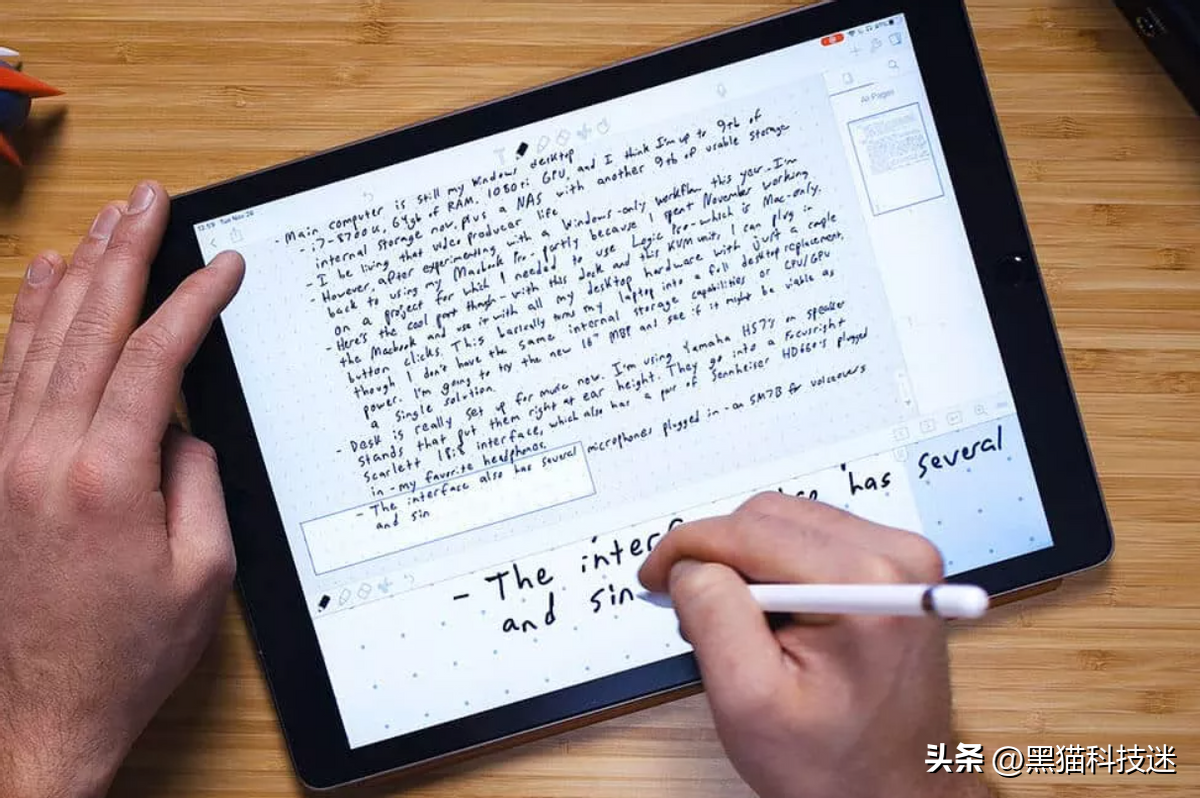 12:59 Tue Nov 26
All Pages
- Main computer is still my Windows desktop
- i7-8700K, 64gb of RAM, 1080ti GPU, and I think I'm up to 9tb of
internal storage now, plus a NAS with another 9tb of usable storage
I be living that video producer life
- However, after experimenting with a Windows-only workflow this year - I'm
back to using my Macbook Pro - partly because I spent November working
on a project for which I needed to use Logic Pro - which is Mac-only.
- Here's the cool part though - with this dock and this KVM unit, I can plug in
the Macbook and use it with all my desktop hardware with just a couple
button clicks. This basically turns my laptop into a full desktop replacement,
though I don't have the same internal storage capabilities or CPU/GPU
power. I'm going to try the new 16" MBP and see if it might be viable as
a single solution.
- Desk is really set up for music now. I'm using Yamaha HS7's on speaker
stands that put them right at ear height. They go into a Focusright
Scarlett 18i8 interface, which also has a pair of Sennheiser HD660s plugged
in - my favorite headphones.
- The interface also has several microphones plugged in - an SM7B for voiceovers
and sin
- The inter has several
and sin
头条 @黑猫科技迷